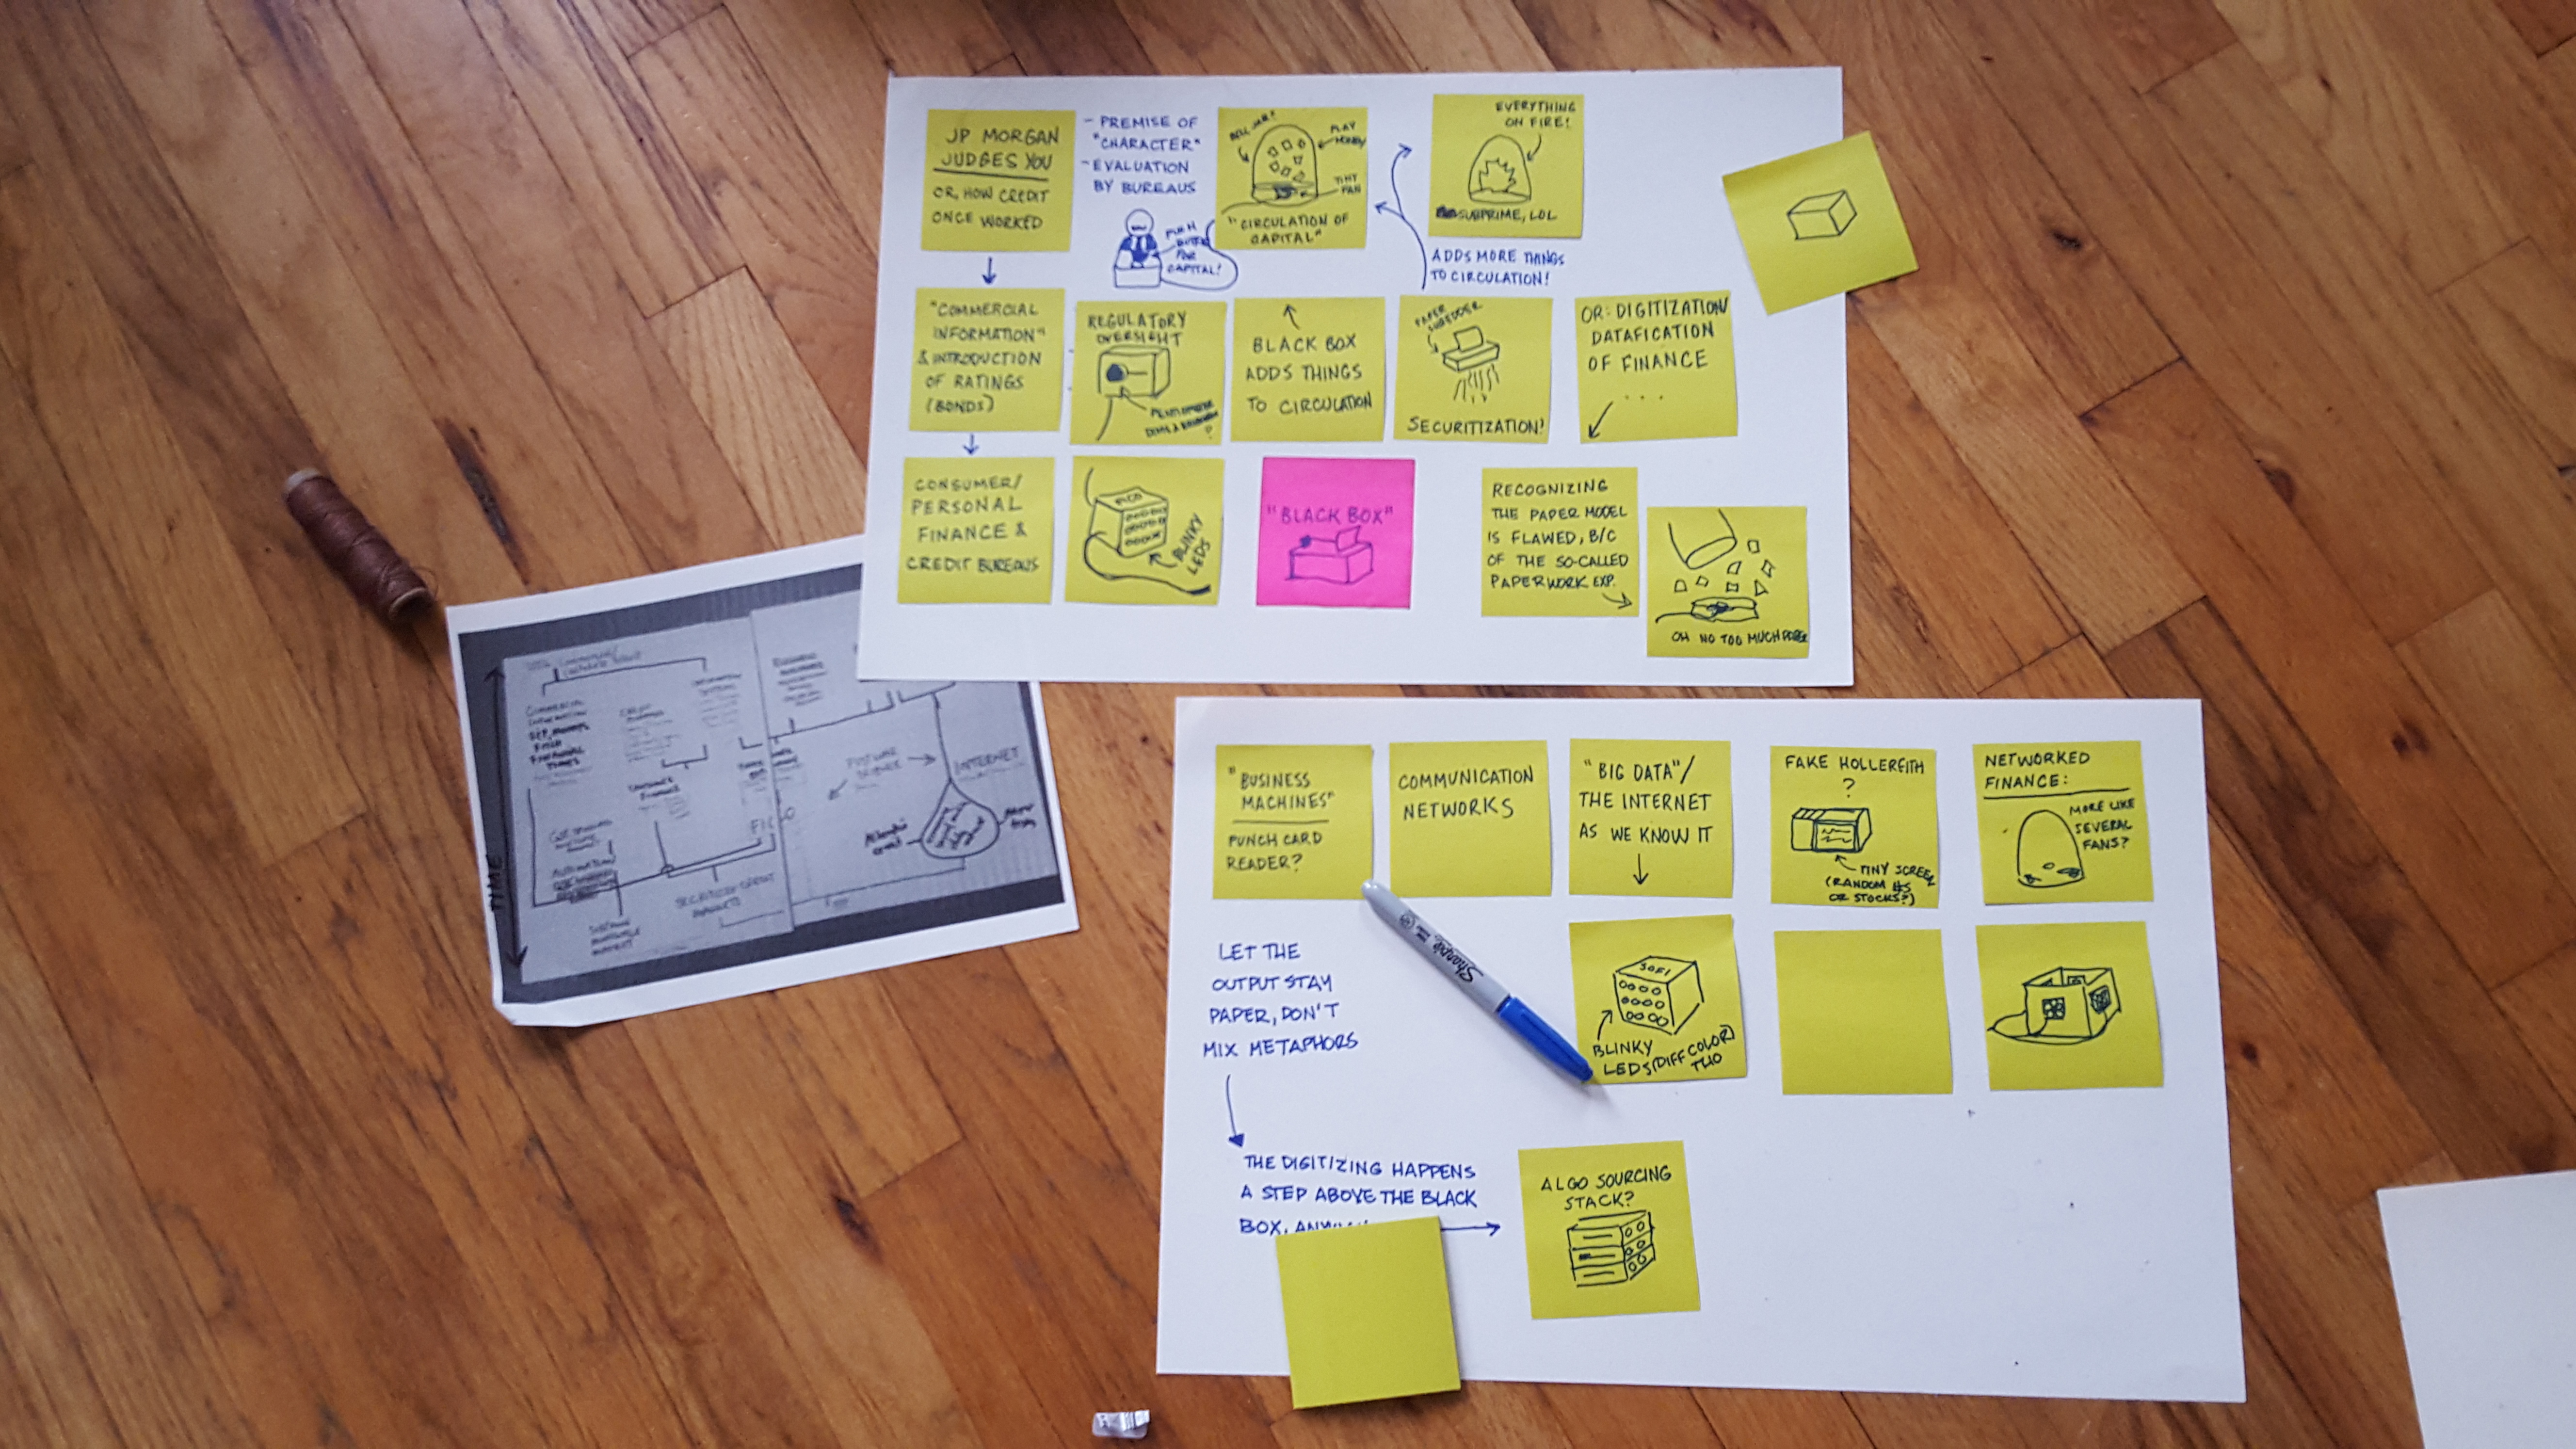 JP MORGAN
JUDGES YOU
OR, HOW CREDIT
ONCE WORKED
- PREMISE OF
"CHARACTER"
- EVALUATION
BY BUREAUS
PUSH
FOR
CAPITAL!
BELL JAR?
PLAY
MONEY
TINY
FAN
"CIRCULATION OF
CAPITAL"
EVERYTHING
ON FIRE!
SUBPRIME, LOL
ADDS MORE THINGS
TO CIRCULATION!
"COMMERCIAL
INFORMATION"
& INTRODUCTION
OF RATINGS
(BONDS)
REGULATORY
OVERSIGHT
?
BLACK BOX
ADDS THINGS
TO CIRCULATION
PAPER
SHREDDER
SECURITIZATION!
OR: DIGITIZATION/
DATAFICATION
OF FINANCE
...
CONSUMER/
PERSONAL
FINANCE &
CREDIT BUREAUS
FICO
BLINKY
LEDS
"BLACK BOX"
RECOGNIZING
THE PAPER MODEL
IS FLAWED, B/C
OF THE SO-CALLED
PAPERWORK EXP.
OH NO TOO MUCH PAPER
TIME
INTERNET
FICO
"BUSINESS
MACHINES"
PUNCH CARD
READER?
COMMUNICATION
NETWORKS
"BIG DATA"/
THE INTERNET
AS WE KNOW IT
FAKE HOLLERITH
?
TINY SCREEN
(RANDOM #S
OR STOCKS?)
NETWORKED
FINANCE:
MORE LIKE
SEVERAL
FANS?
LET THE
OUTPUT STAY
PAPER, DON'T
MIX METAPHORS
Sharpie
SOFI
BLINKY
LEDS (DIFF COLOR)
THO
THE DIGITIZING HAPPENS
A STEP ABOVE THE BLACK
BOX,
ALGO SOURCING
STACK?